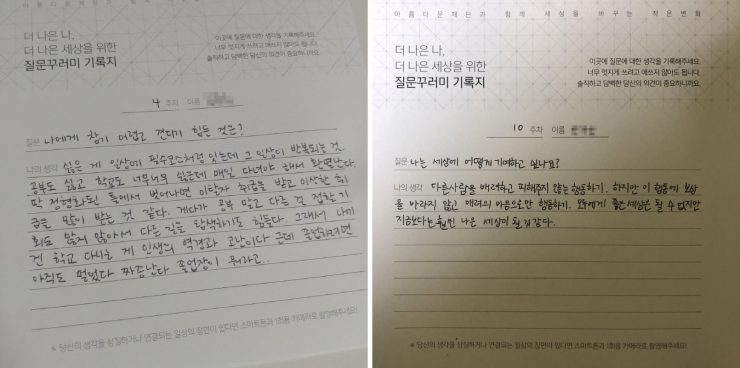 아름다운재단과 함께 세상을 바꾸는 작은변화
더 나은 나,
더 나은 세상을 위한
질문꾸러미 기록지
이곳에 질문에 대한 생각을 기록해주세요.
너무 멋지게 쓰려고 애쓰지 않아도 됩니다.
솔직하고 담백한 당신의 의견이 중요하니까요.
4 주차 이름
질문 나에게 참기 어렵고 견디기 힘든 것은?
나의 생각 싫은 게 일상에 필수요소처럼 있는데 그 일상이 반복되는 것.
공부도 싫고 학교도 너무너무 싫은데 매일 다녀야 해서 환멸난다.
딱 정형화된 틀에서 벗어나면 이탈자 취급을 받고 이상한 취
급을 많이 받는 것 같다. 게다가 공부 말고 다른 걸 접할 기
회도 많지 않아서 다른 길을 탐색하기도 힘들다 그래서 나에
건 학교 다니는 게 인생의 역경과 고난이다 근데 졸업하려면
아직도 멀었다 짜증난다 졸업장이 뭐라고..
※ 당신의 생각을 상징하거나 연결되는 일상의 장면이 있다면 스마트폰과 1회용 카메라로 촬영해주세요!
아름다운재단과 함께 세상을 바꾸는 작은변화
더 나은 나,
더 나은 세상을 위한
질문꾸러미 기록지
이곳에 질문에 대한 생각을 기록해주세요.
너무 멋지게 쓰려고 애쓰지 않아도 됩니다.
솔직하고 담백한 당신의 의견이 중요하니까요.
10 주차 이름
질문 나는 세상에 어떻게 기여하고 싶나요?
나의 생각 다른사람을 배려하고 피해주지 않는 행동하기. 하지만 이 행동에 보상
을 바라지 않고 배려의 마음으로만 행동하기. 모두에게 좋은 세상은 될 수 없지만
지금보다는 훨씬 나은 세상이 될 것 같다.
※ 당신의 생각을 상징하거나 연결되는 일상의 장면이 있다면 스마트폰과 1회용 카메라로 촬영해주세요!